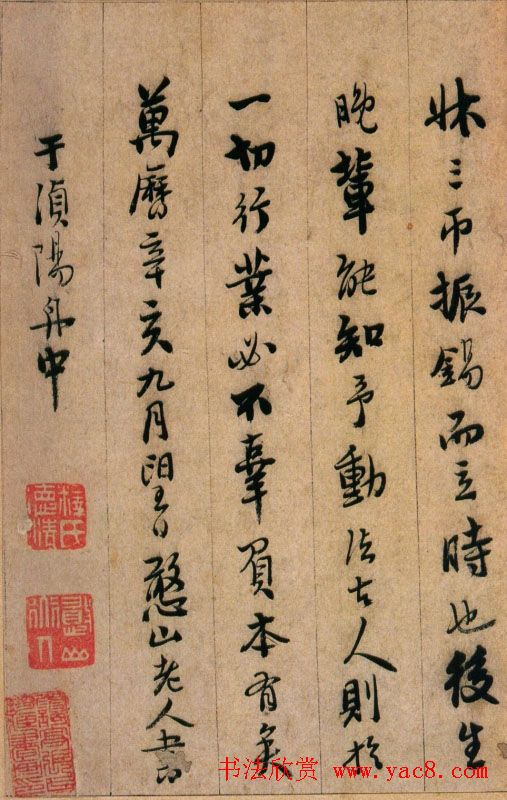 牀三帀振錫而立時也後生
晚輩能知予動法古人則於
一切行業必不辜負本有矣
萬曆辛亥九月朢日憨山老人書
于湞陽舟中
釋氏德清
书法欣赏 www.yac8.com